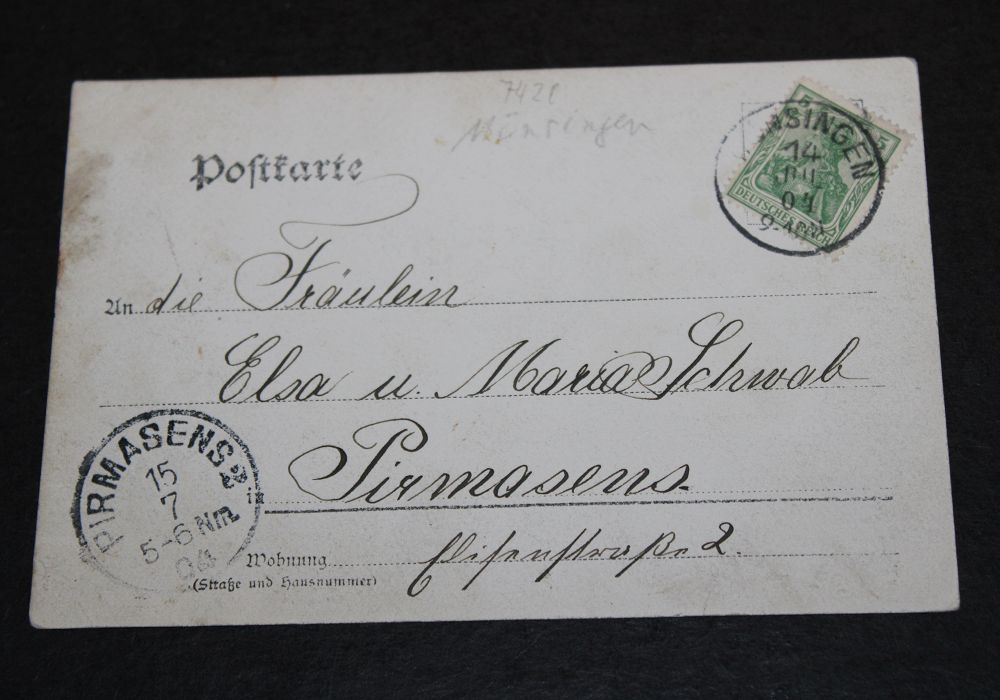 7421
Münsingen
Postkarte
5 5
DEUTSCHES REICH
NSINGEN
14
JUL
04
An die Fräulein
Elsa u. Maria Schwab
in Pirmasens.
Wohnung Elisenstraße 2.
(Straße und Hausnummer)
PIRMASENS 2
15
7
5-6 Nm.
04